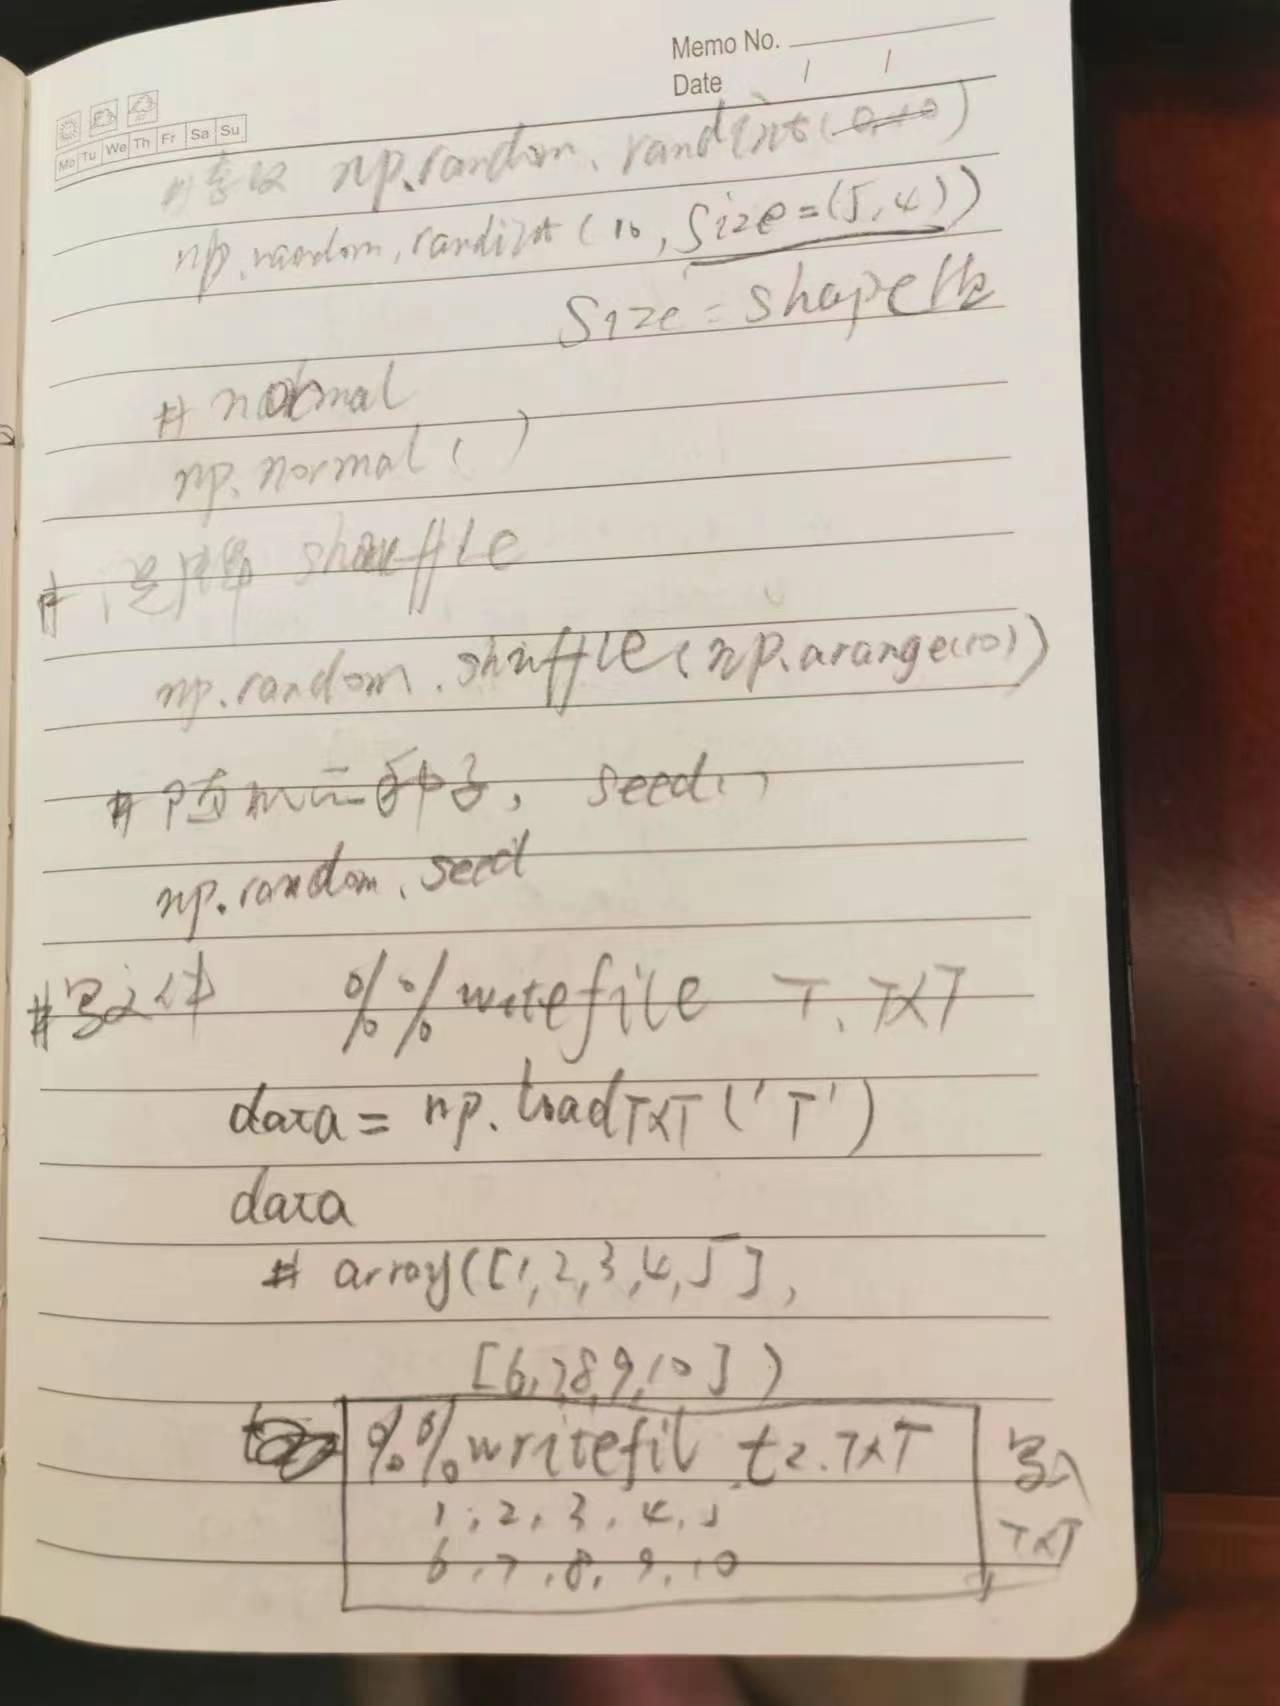 Memo No.
Date / /
Mo Tu We Th Fr Sa Su
# np.random.randint(0,10)
np.random.randint(10,Size=(5,4))
Size=shape
# normal
np.normal()
# 洗牌 shuffle
np.random.shuffle(np.arange(10))
# 随机 种子, seed
np.random.seed
#写文件 %%writefile T.TXT
data = np.loadTXT('T')
data
# array([1,2,3,4,5],
[6,7,8,9,10])
%%writefil t2.TXT 写入
1,2,3,4,5 TXT
6,7,8,9,10